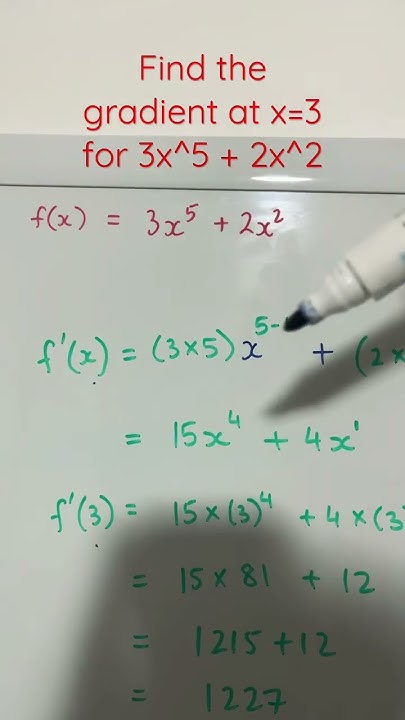 Find the
gradient at x=3
for 3x^5 + 2x^2
f(x) = 3x⁵ + 2x²
f'(x) = (3×5)x⁵⁻ + (2×
= 15x⁴ + 4x¹
f'(3) = 15×(3)⁴ + 4×(3
= 15×81 + 12
= 1215+12
= 1227